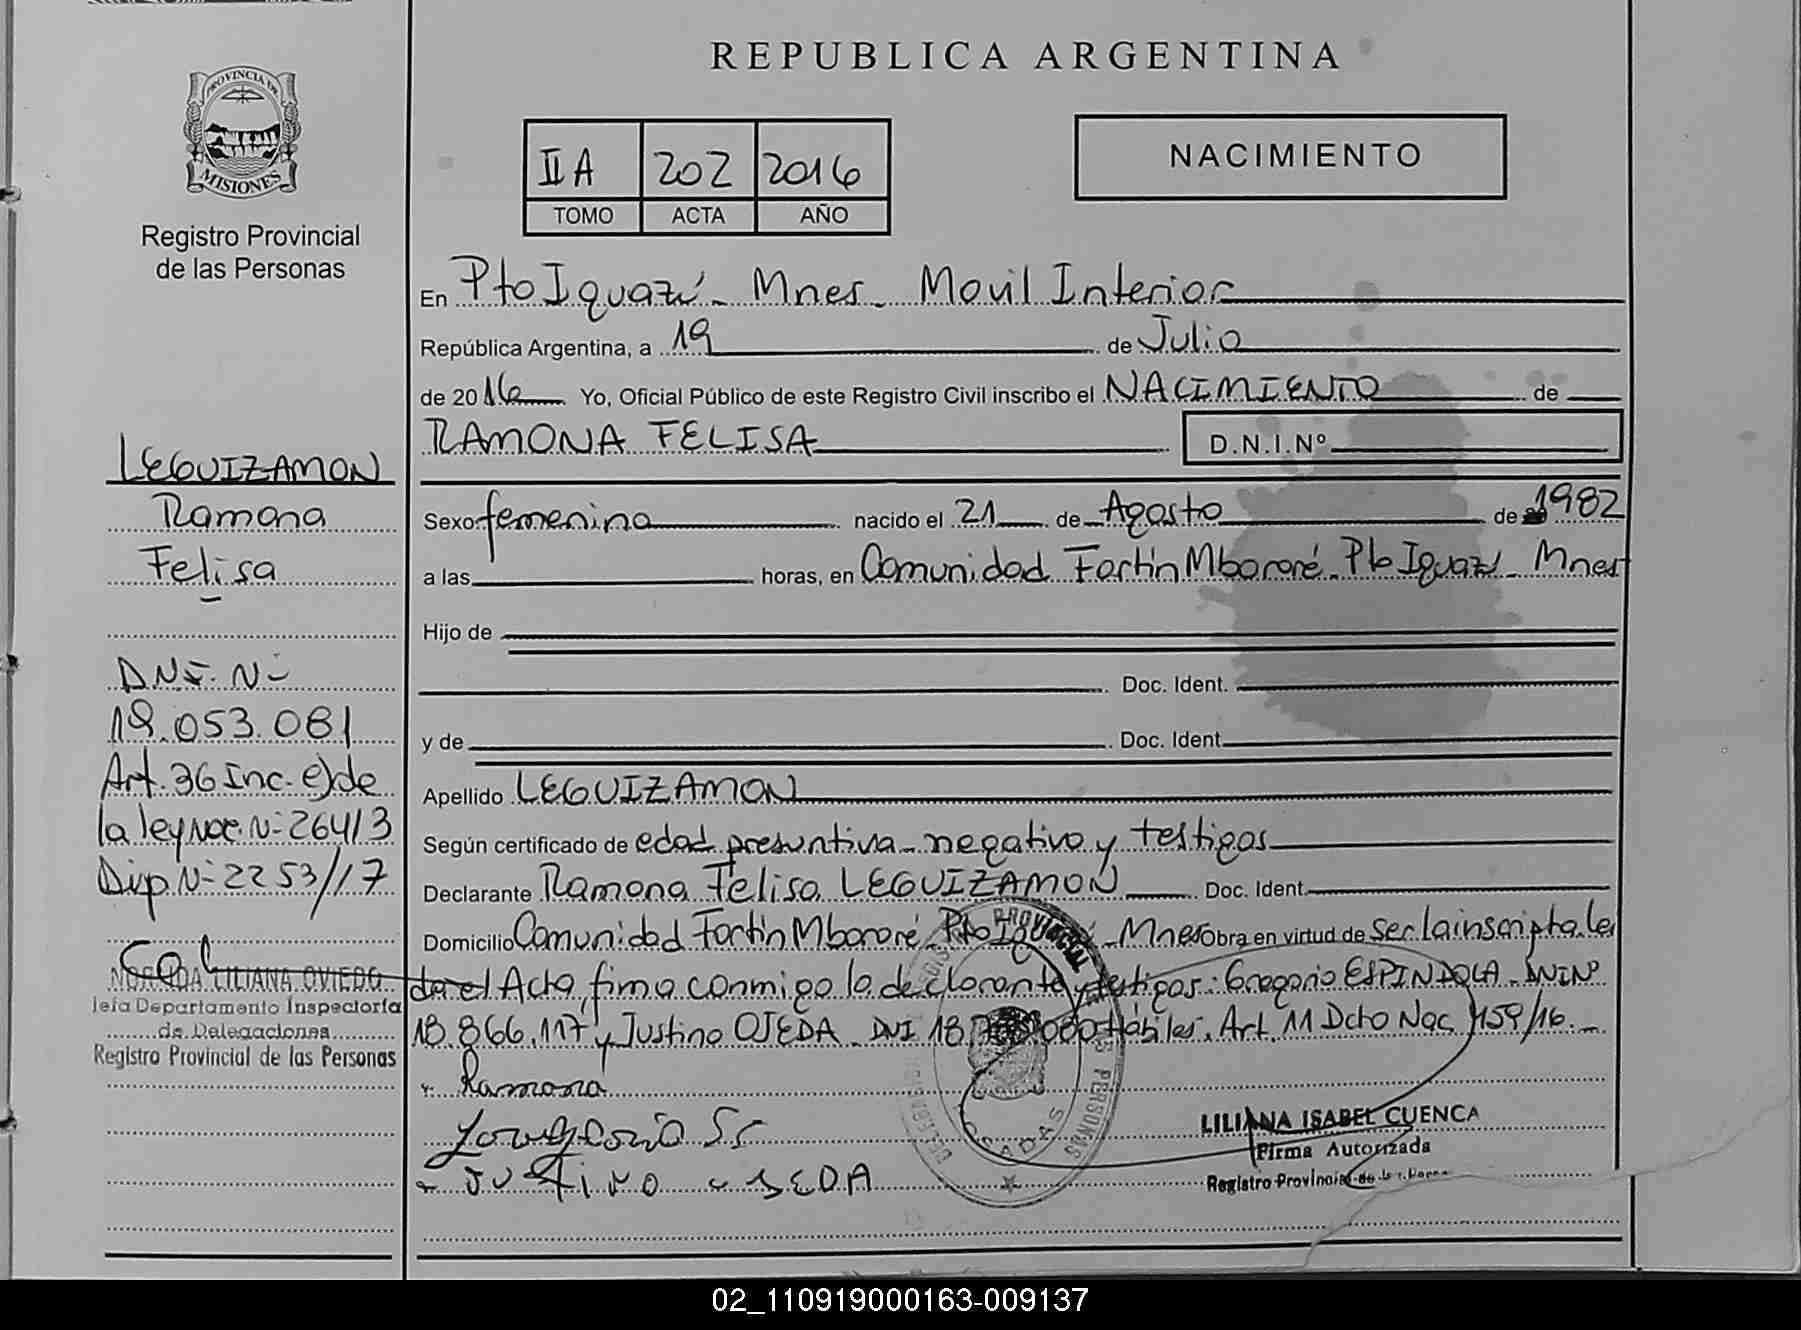 REPUBLICA ARGENTINA
PROVINCIA DE
MISIONES
Registro Provincial
de las Personas
IIA 202 2016
TOMO ACTA AÑO
NACIMIENTO
En Pto Iguazú - Mnes - Movil Interior
República Argentina, a 19 de Julio
de 2016 Yo, Oficial Público de este Registro Civil inscribo el NACIMIENTO de
RAMONA FELISA D.N.I.Nº
Sexo femenino nacido el 21 de Agosto de 1982
a las horas, en Comunidad Fortín Mbororé - Pto Iguazú - Mnes
Hijo de
Doc. Ident.
y de Doc. Ident.
Apellido LEGUIZAMON
Según certificado de edad presuntiva - negativo y testigos
Declarante Ramona Felisa LEGUIZAMON Doc. Ident.
Domicilio Comunidad Fortín Mbororé - Pto - Mnes Obra en virtud de ser la inscripta leí
da el Acta, firma conmigo la declarante y testigos: Gregorio ESPINDOLA - DNI Nº
18.866.117 y Justino OJEDA - DNI 18. Hábiles. Art. 11 Dcto Nac 459/16.-
Ramona
JUSTINO OJEDA
LILIANA ISABEL CUENCA
Firma Autorizada
Registro Provincial de las
LEGUIZAMON
Ramona
Felisa
DNI. Nº
19.053.081
Art. 36 Inc. e) de
la ley Nac. Nº 26413
Disp. Nº 2253/17
LILIANA OVIEDO
Jefa Departamento Inspectoría
de Delegaciones
Registro Provincial de las Personas
02_110919000163-009137